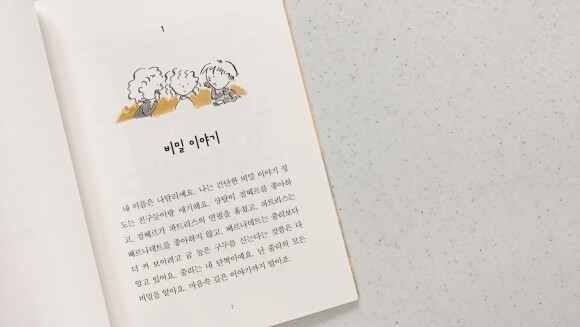 1
비밀 이야기
내 이름은 나탈리예요. 나는 간단한 비밀 이야기 정
도는 친구들이랑 얘기해요. 샹탈이 질베르를 좋아하
고, 질베르가 파트리스의 연필을 훔쳤고, 파트리스는
베르나데트를 좋아하지 않고, 베르나데트는 줄리보다
더 커 보이려고 굽 높은 구두를 신는다는 것쯤은 다
알고 있어요. 줄리는 내 단짝이에요. 난 줄리의 모든
비밀을 알아요. 마음속 깊은 이야기까지 말이죠.
7